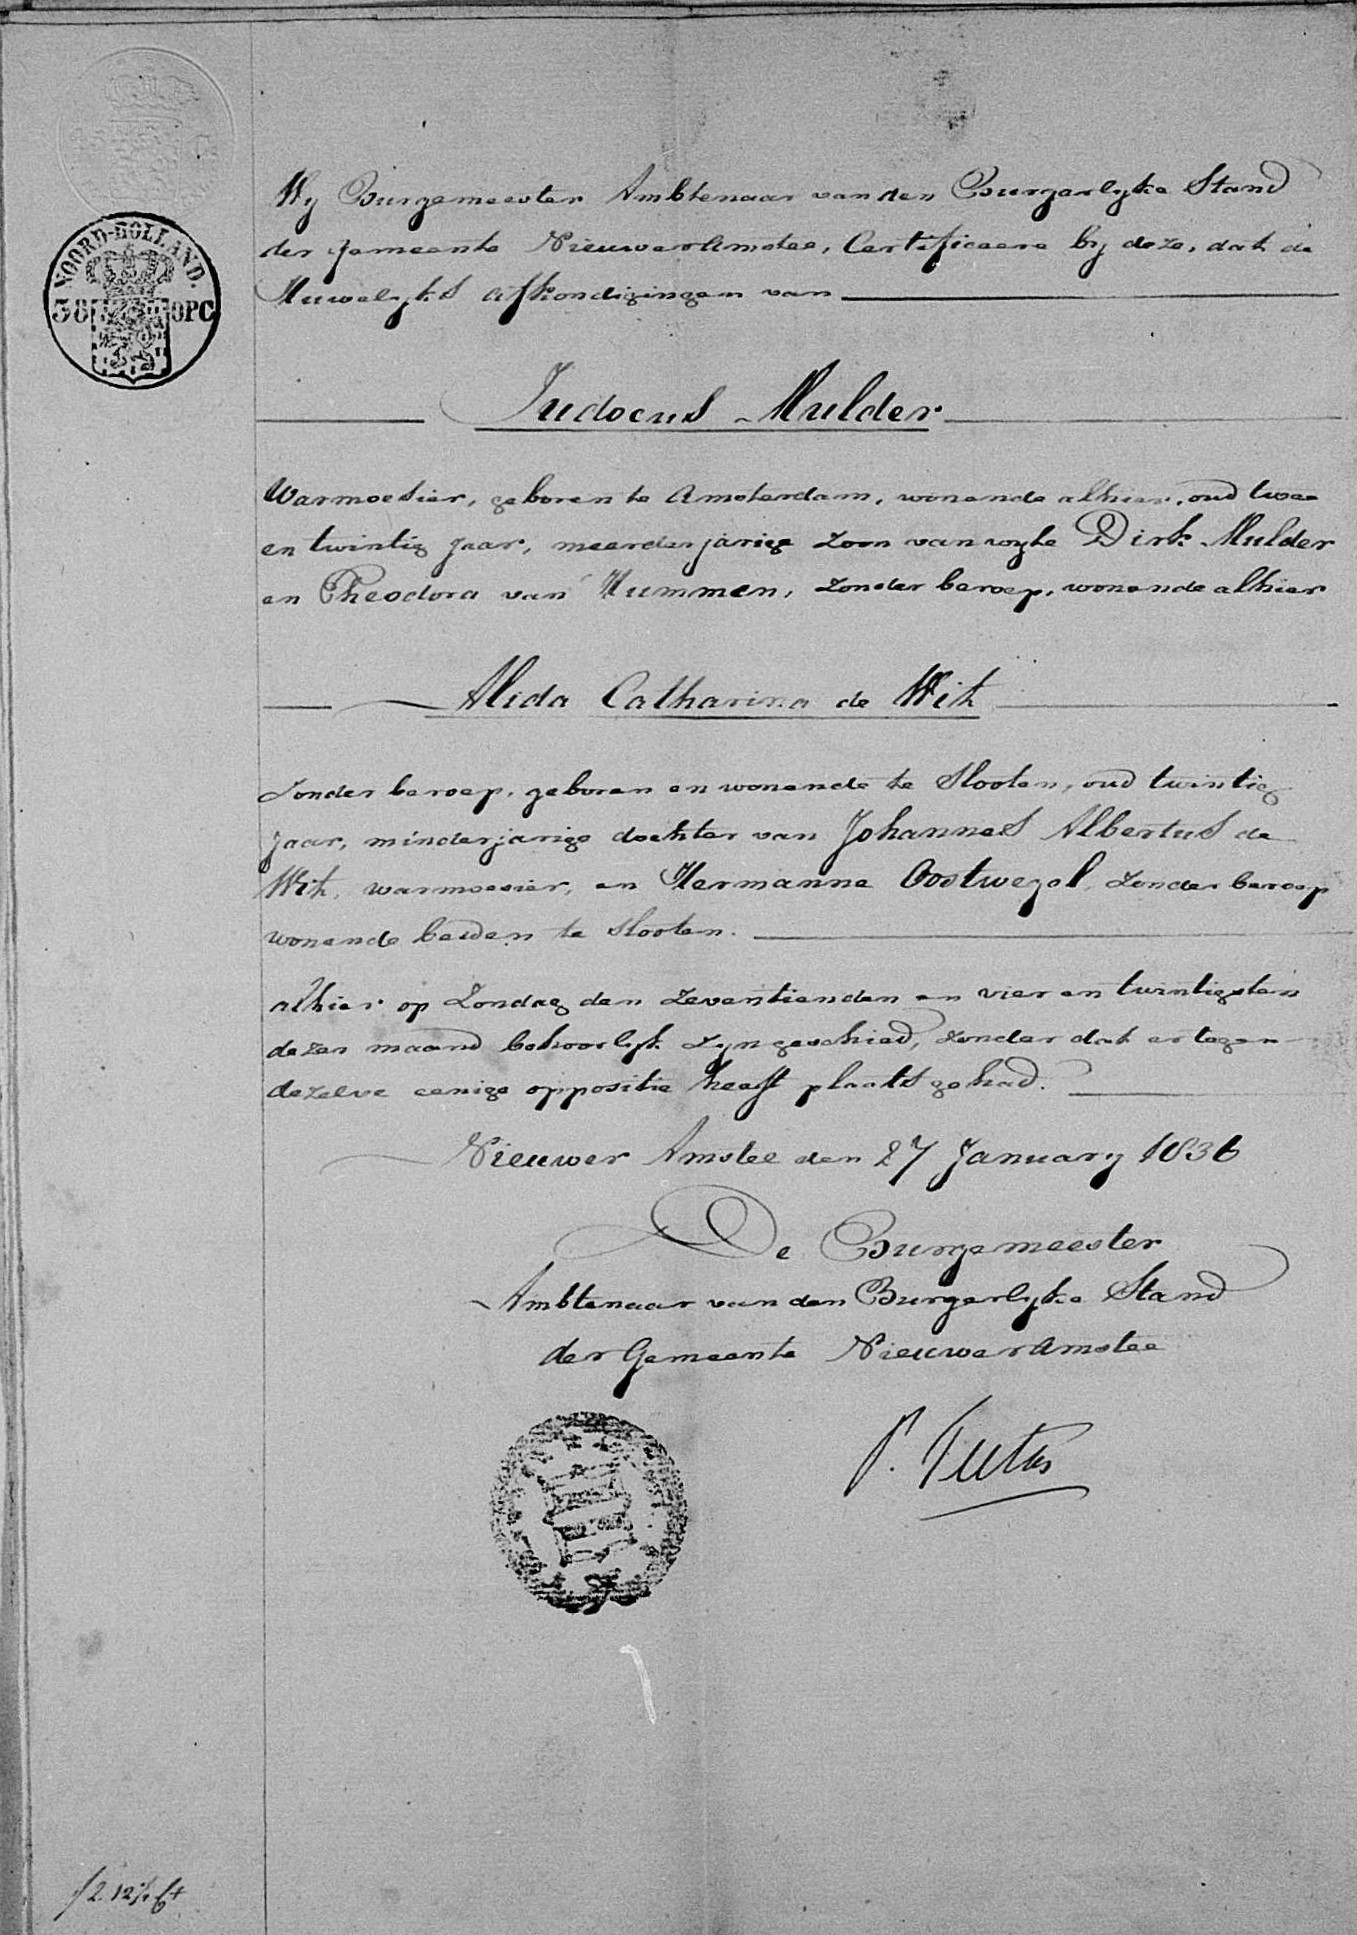 NOORD-HOLLAND.
38 OPC
Wy Burgemeester Ambtenaar van den Burgerlyke Stand
der gemeente NieuwerAmstel, Certificeere by deze, dat de
Huwelyks afkondigingen van
Judocus Mulder
Warmoesier, geboren te Amsterdam, wonende alhier, oud twee
en twintig Jaar, meerderjarige zoon van wyle Dirk Mulder
en Theodora van Hummen, zonder beroep, wonende alhier
Alida Catharina de Wit
Zonder beroep, geboren en wonende te Slooten, oud twintig
Jaar, minderjarige dochter van Johannes Albertus de
Wit, warmoesier, en Hermanne Oostwegel, zonder beroep
wonende beiden te Slooten.
alhier op Zondag den Zeventienden en vier en twintigsten
dezer maand behoorlyk zyn geschied, zonder dat er tegen
dezelve eenige oppositie heeft plaats gehad.
Nieuwer Amstel den 27 January 1836
De Burgemeester
Ambtenaar van den Burgerlyke Stand
der Gemeente NieuwerAmstel